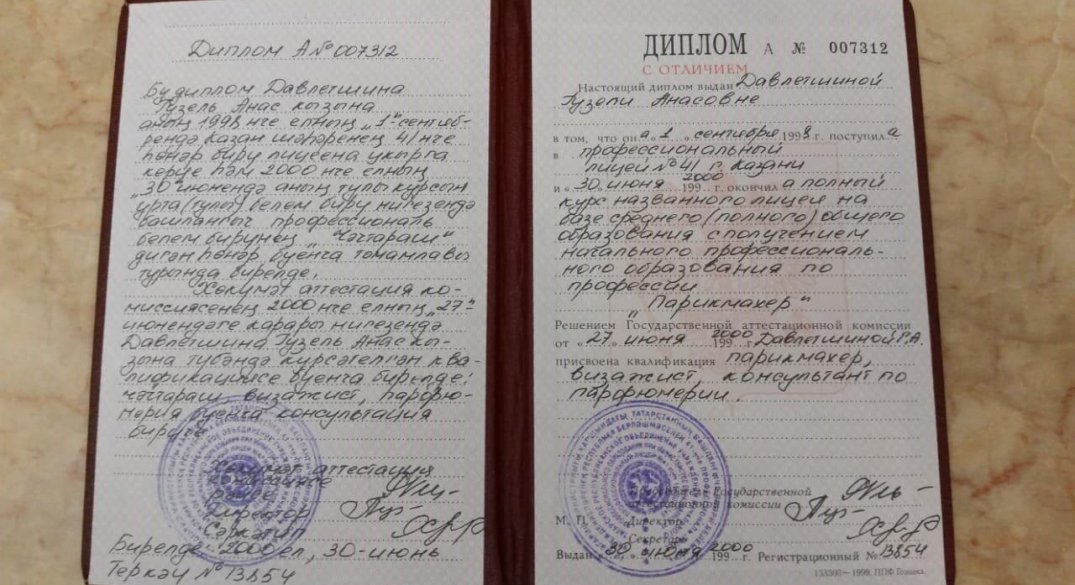 Диплом А № 007312
Бу диплом Давлетшина
Гузель Анас кызына
аның 1998 нче елның „1" сентяб-
рендә Казан шәһәренең 41 нче
һөнәр бирү лицеена укырга
кереп һәм 2000 нче елның
„30" июнендә аның тулы курсын
урта (тулы) белем бирү нигезендә
башлангыч профессиональ
белем бирүнең „Чәчтараш"
дигән һөнәр буенча тәмамлавы
турында бирелде.
Хөкүмәт аттестация ко-
миссиясенең 2000 нче елның „27"
июнендәге карары нигезендә
Давлетшина Гузель Анас кы-
зына түбәндә күрсәтелгән ква-
лификациясе буенча бирелде:
чәчтараш, визажист, парфю-
мерия буенча консультация
бирүче
Хөкүмәт аттестация
комиссиясе
рәисе
Директор
Секретарь
Бирелде 2000 ел, 30-июнь
Теркәү № 13854
ДИПЛОМ А № 007312
С ОТЛИЧИЕМ
Настоящий диплом выдан Давлетшиной
Гузели Анасовне
в том, что он а „1" сентября 1998 г. поступил а
в профессиональный
лицей № 41 г. Казани
и « 30 » июня 2000 199 г. окончил а полный
курс названного лицея на
базе среднего (полного) общего
образования с получением
начального профессиональ-
ного образования по
профессии
„Парикмахер"
Решением Государственной аттестационной комиссии
от « 27 » июня 2000 199 г. Давлетшиной Г.А.
присвоена квалификация парикмахер,
визажист, консультант по
парфюмерии.
Председатель Государственной
аттестационной комиссии
М. П. Директор
Секретарь
Выдан « 30 » июня 2000 Регистрационный № 13854